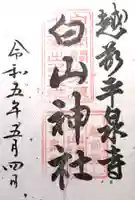 越前平泉寺
白山神社
令和五年五月四日